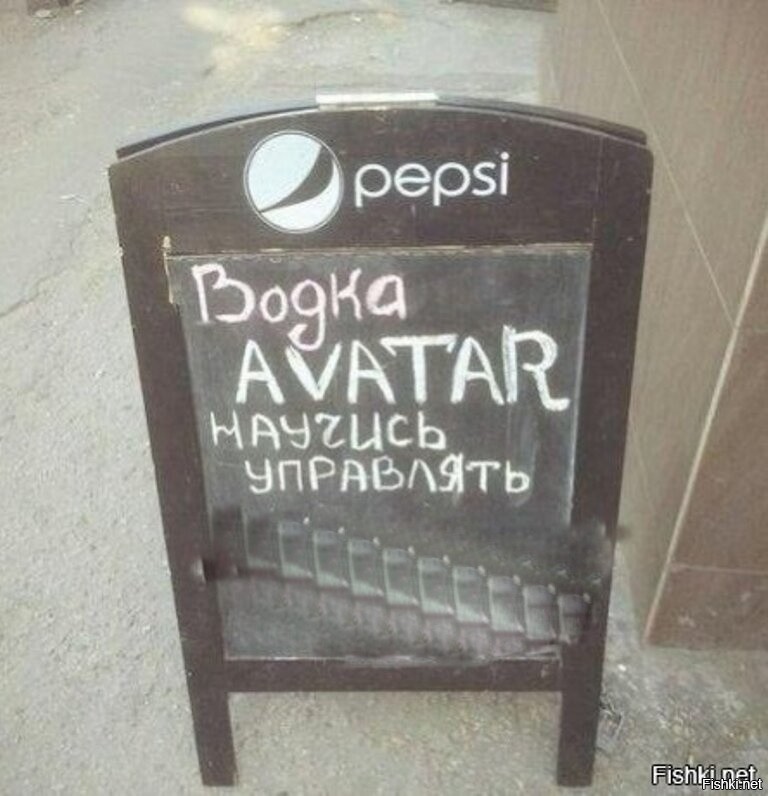 pepsi
Водка
AVATAR
НАУЧИСЬ
УПРАВЛЯТЬ
Fishki.net
Fishki.net